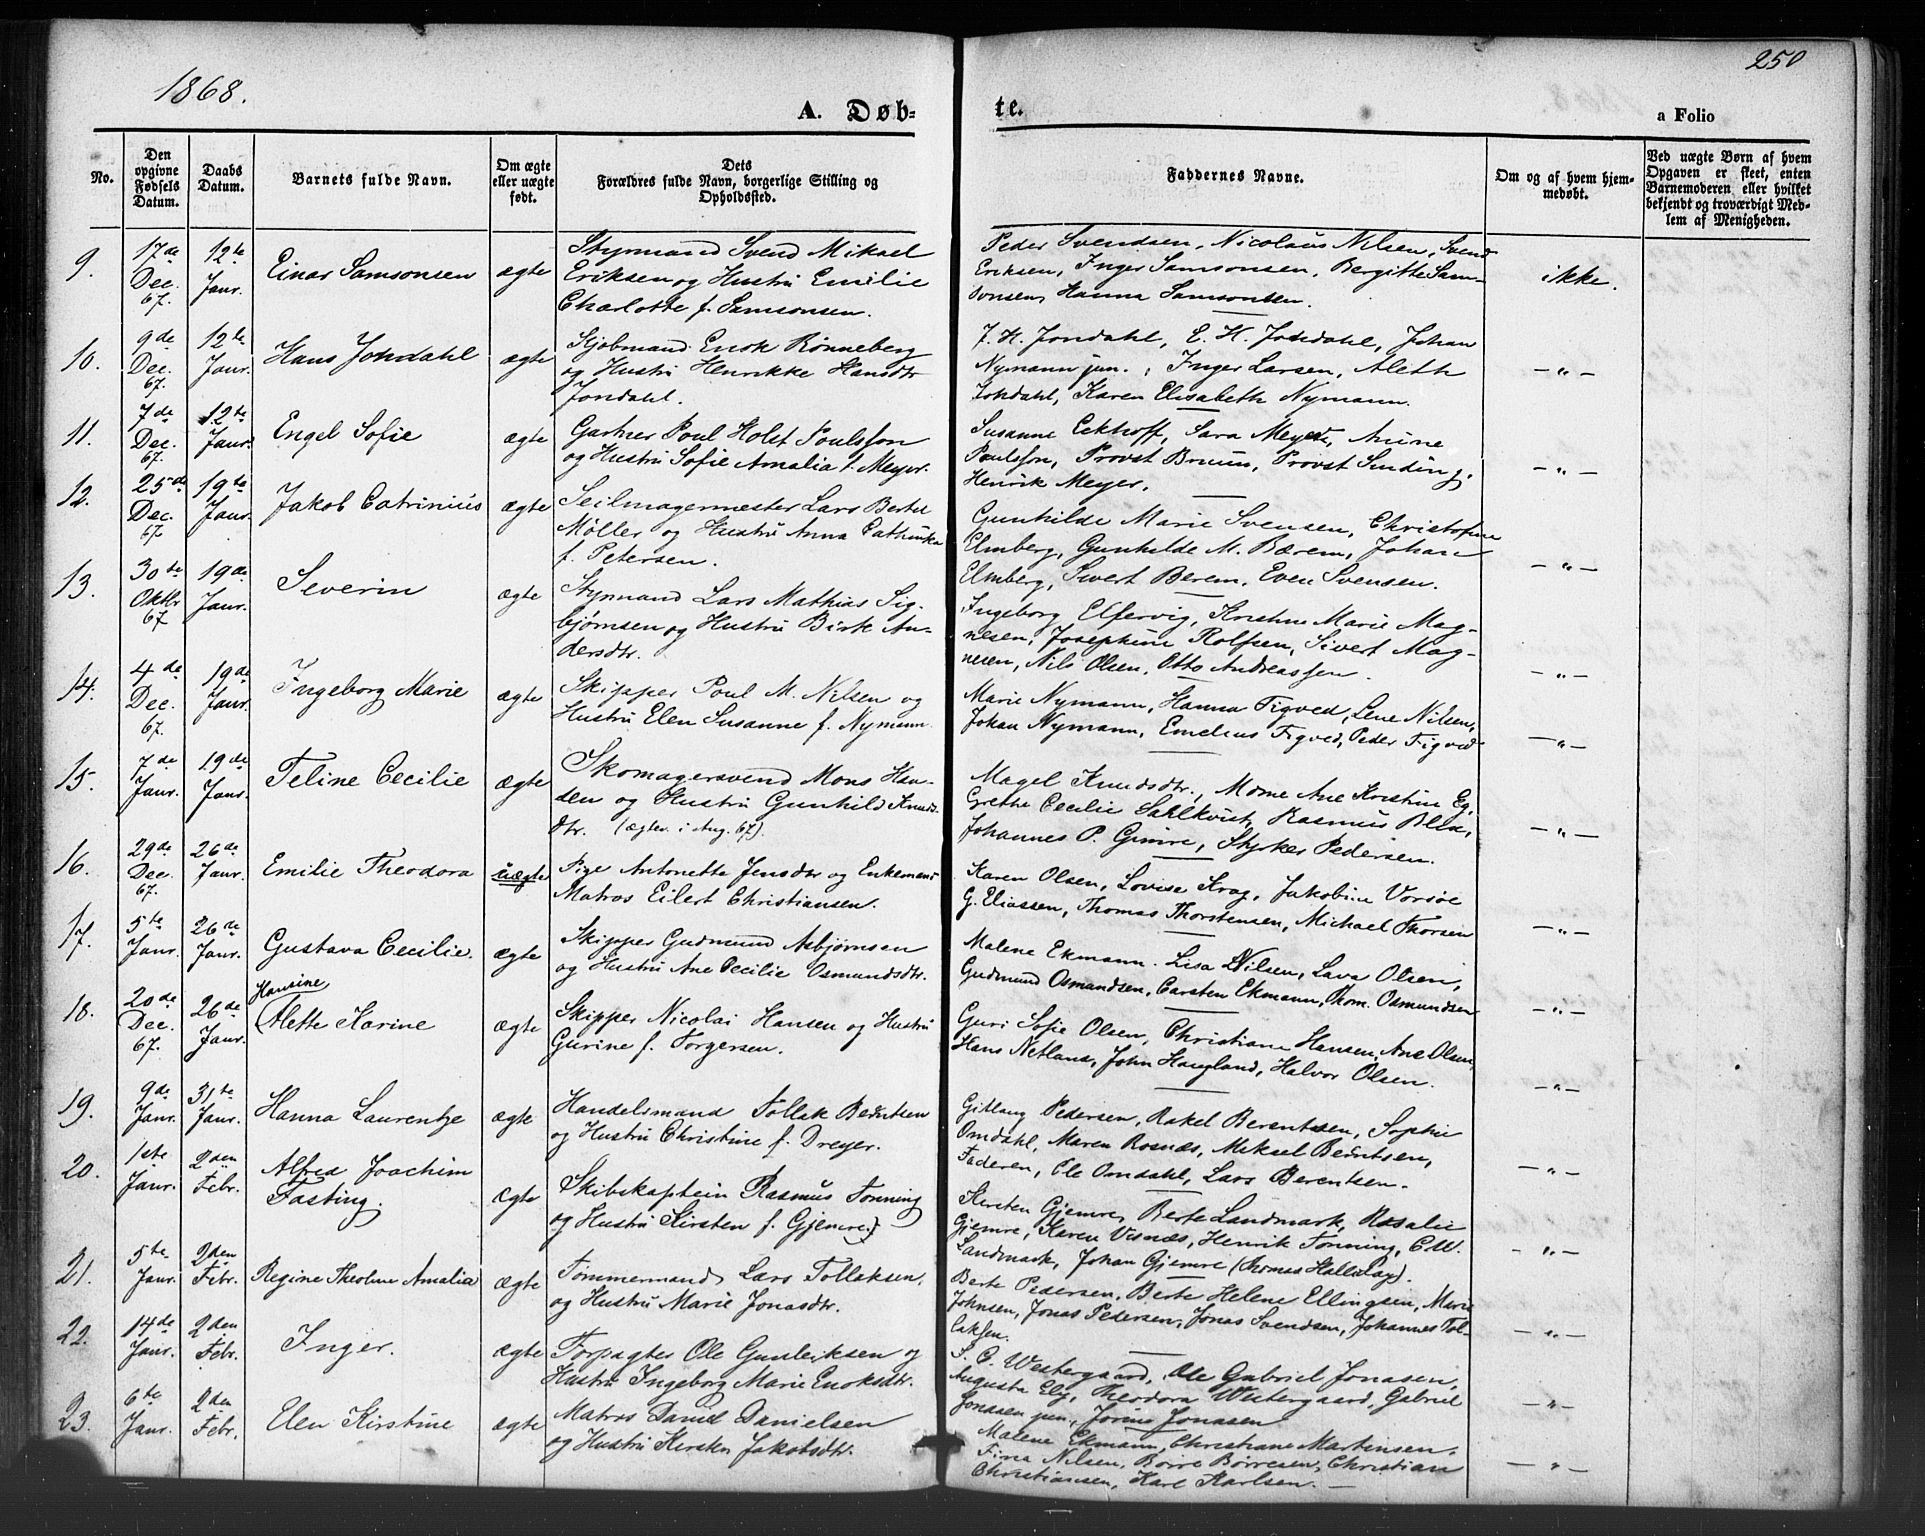 1868.
250
A. Døb-
te.
a Folio
No.
Den opgivne Fødsels Datum.
Daabs Datum.
Barnets fulde Navn.
Om ægte eller uægte født.
Dets Forældres fulde Navn, borgerlige Stilling og Opholdssted.
Faddernes Navne.
Om og af hvem hjemmedøbt.
Ved uægte Børn af hvem Opgaven er skeet, enten Barnemoderen eller hvilket bekjendt og troværdigt Medlem af Menigheden.
9. 17de Dec. 67. 12te Janr. Einar Samsonsen ægte
Styrmand Svend Mikael
Eriksen og Hustru Emilie
Charlotte f. Samsonsen.
Peder Svendsen, Nicolaus Nilsen, Svend
Eriksen, Inger Samsonsen, Bergitte Sam-
sonsen, Hanna Samsonsen.
ikke.
10. 9de Dec. 67. 12te Janr. Hans Jondahl ægte
Sjøbmand Enok Rønneberg
og Hustru Henrikke Hansdtr
Jondahl.
J. H. Jondahl, E. H. Jondahl, Johan
Nymann jun., Inger Larsen, Aleth
Jondahl, Karen Elisabeth Nymann.
— " —
11. 7de Dec. 67. 12te Janr. Engel Sofie ægte
Gartner Poul Holst Poulsson
og Hustru Sofie Amalia f. Meyer.
Susanne Eckhoff, Sara Meyer, Anine
Poulsson, Provst Bruun, Provst Sinding,
Henrik Meyer.
— " —
12. 25de Dec. 67 19te Janr. Jakob Catrinius ægte
Seilmagermester Lars Bertel
Møller og Hustru Anna Cathinka
f. Petersen.
Gunhilde Marie Svensen, Christofine
Elmberg, Gunhilde M. Bærem, Johan
Elmberg, Sivert Berem, Even Svensen.
— " —
13. 30te Oktbr 67 19de Janr. Severin ægte
Styrmand Lars Mathias Sig-
bjørnsen og Hustru Birk An-
dersdtr.
Ingeborg Elfervig, Kristine Marie Mag-
nesen, Josephine Rolfsen, Sivert Mag-
nesen, Nils Olsen, Otto Andreassen.
— " —
14. 4de Dec. 67. 19de Janr. Ingeborg Marie ægte
Skipper Poul M. Nilsen og
Hustru Elen Susanne f. Nymann
Marie Nymann, Hanna Figved, Lene Nilsen,
Johan Nymann, Emelius Figved, Peder Figved
— " —
15. 7de Janr. 19de Janr. Feline Cecilie ægte
Skomagersvend Mons Han-
sen og Hustru Gunhild Knuds-
dtr. (ægtev. i Aug. 67).
Magel Knudsdtr., Mome Ane Kirstine Eg,
Grethe Cecilie Sahlkvist, Rasmus Blix,
Johannes P. Gimre, Styrker Pedersen.
— " —
16. 29de Dec. 67. 26de Janr. Emilie Theodora uægte
Pige Antonette Jensdtr og Enkemand
Matros Eilert Christiansen.
Karen Olsen, Lovise Krag, Jakobine Vorsøe
G. Eliassen, Thomas Thorstensen, Michael Thorsen
— " —
17. 5te Janr. 26de Janr. Gustava Cecilie. ægte
Skipper Gudmund Asbjørnsen
og Hustru Ane Cecilie Osmundsdtr.
Malene Ekmann. Lisa Nilsen, Lava Olsen,
Gudmund Osmandsen, Carsten Ekmann, Thom. Osmundsen
— " —
18. 20de Dec. 67. 26de Janr. Hansine
Alette Karine ægte
Skipper Nicolai Hansen og Hustru
Gurine f. Torgersen.
Guri Sofie Olsen, Christiane Hansen, Ane Olsen
Hans Netland, John Haugland, Halvor Olsen.
— " —
19. 9de Janr. 31te Janr. Hanna Laurentze ægte
Handelsmand Tollak Berntsen
og Hustru Christine f. Dreyer.
Gitlaug Pedersen, Rakel Berentsen, Sophie
Omdahl, Maren Rosnæs, Mikael Berntsen,
Faderen, Ole Omdahl, Lars Berentsen.
— " —
20. 1ste Janr. 2den Febr. Alfred Joachim
Fasting. ægte
Skibskaptein Rasmus Tonning
og Hustru Kirsten f. Gjemre.
Kirsten Gjemre, Berte Landmark, Rosalie
Gjemre, Karen Visnæs, Henrik Tonning, C.W.
Landmark, Johan Gjemre (Thomas Halleley).
— " —
21. 5te Janr. 2den Febr. Regine Theoline Amalia ægte
Tømmermand Lars Tollaksen,
og Hustru Marie Jonasdtr.
Berte Pedersen, Berte Helene Ellingsen, Marie
Johnsen, Jonas Pedersen, Jonas Svendsen, Johannes Tol-
laksen.
— " —
22. 14de Janr. 2den Febr. Inger. ægte
Forpagter Ole Gunleiksen og
Hustru Ingeborg Marie Enoksdtr.
S. G. Westergaard, Ole Gabriel Jonasen,
Augusta Ely, Theodora Westergaard, Gabriel
Jonassen jun, Jorine Jonasen
— " —
23. 6te Janr. 2den Febr. Elen Kirstine ægte
Matros Daniel Danielsen
og Hustru Kirsten Jakobsdtr.
Malene Ekmann, Christiane Martinsen.
Fina Nilsen, Borre Børresen, Christian
Christiansen, Karl Karlsen. —
— " —